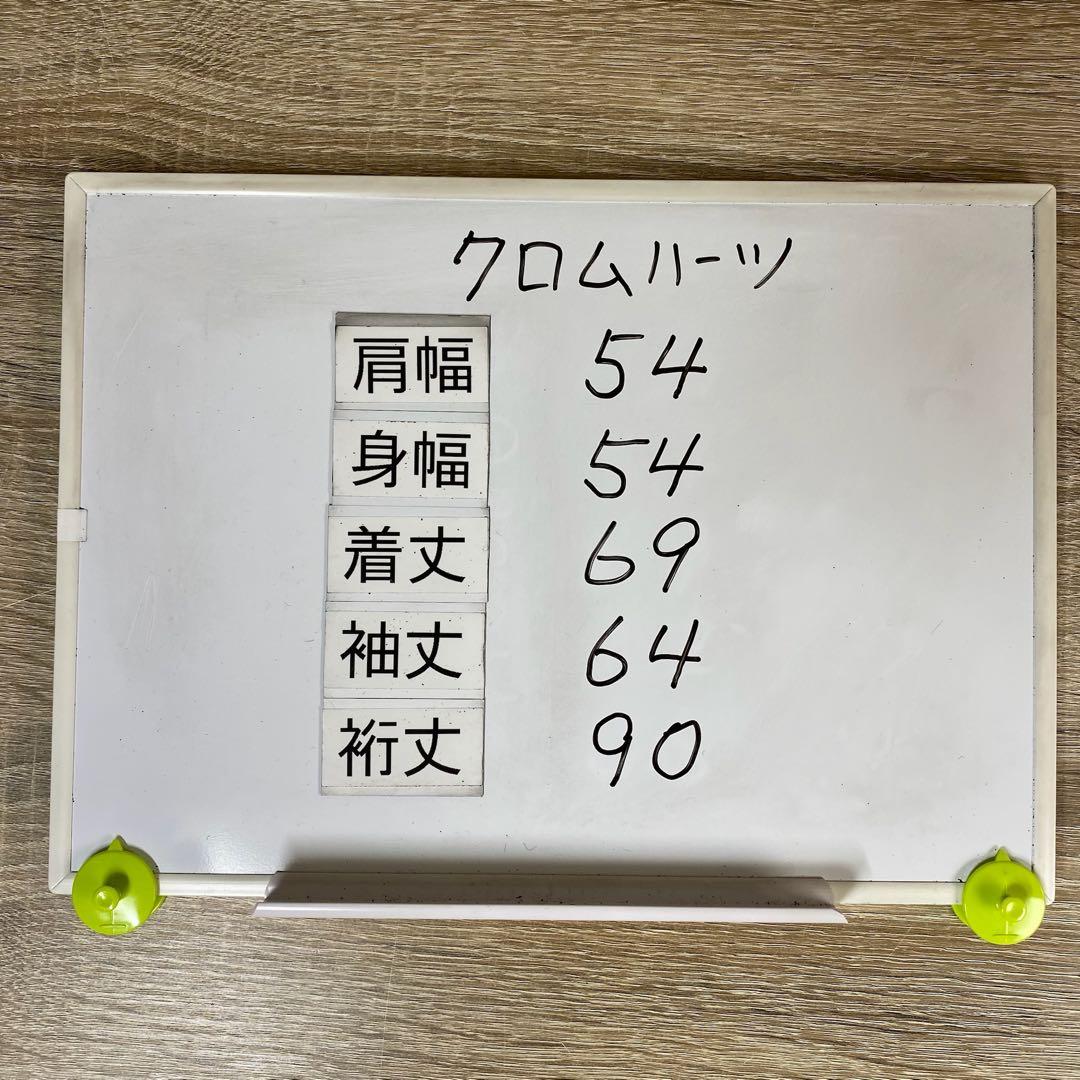 クロムハーツ
肩幅 54
身幅 54
着丈 69
袖丈 64
裄丈 90